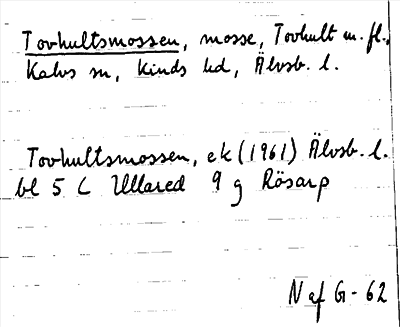 Tovhultsmossen, mosse, Tovhult m. fl.,
Kalvs sn, Kinds hd, Älvsb. l.
Tovhultsmossen, ek (1961) Älvsb. l.
bl 5 C Ullared 9 g Rösarp
N af G-62